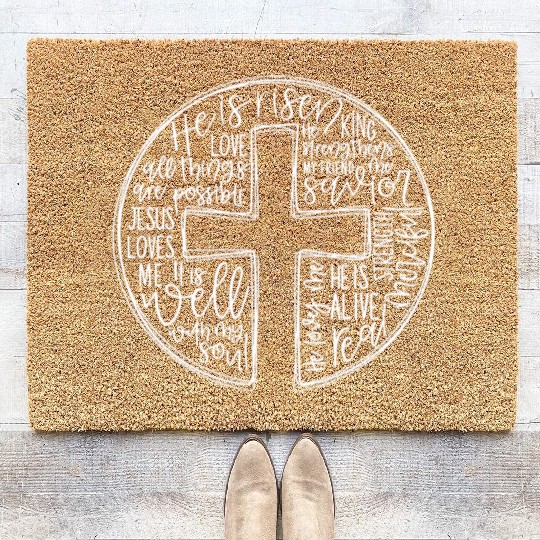 He is risen
LOVE
all things
are possible
JESUS
LOVES
ME
it is
well
with my
soul
He
KING
strengthens
MY FRIEND the
savior
STRENGTH
merciful
HE IS
ALIVE
real